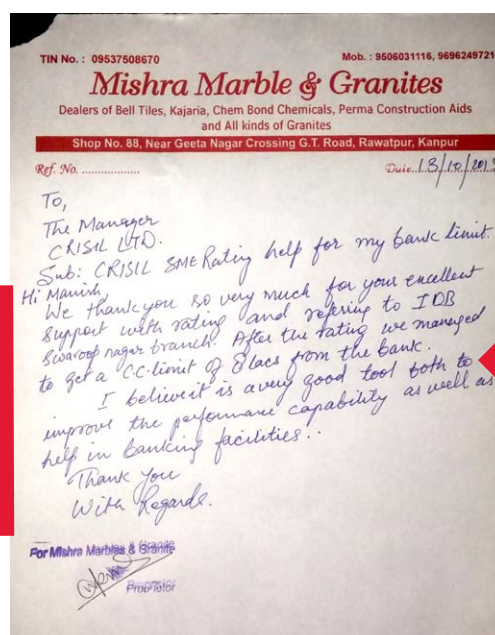 TIN No. : 09537508670 Mob. : 9506031116, 9696249721
Mishra Marble & Granites
Dealers of Bell Tiles, Kajaria, Chem Bond Chemicals, Perma Construction Aids
and All kinds of Granites
Shop No. 88, Near Geeta Nagar Crossing G.T. Road, Rawatpur, Kanpur
Ref. No. .................. Date..13/10/201
To,
The Manager
CRISIL LTD.
Sub: CRISIL SME Rating help for my bank limit.
Hi Manish
We thank you so very much for your excellent
support with rating and refering to IDB
Swaroop nagar branch. After the rating we managed
to get a CC-limit of 8 lacs from the bank.
I believe it is a very good tool both to
improve the performance capability as well as
help in banking facilities..
Thank you
With Regards.
For Mishra Marbles & Granite
Proprietor